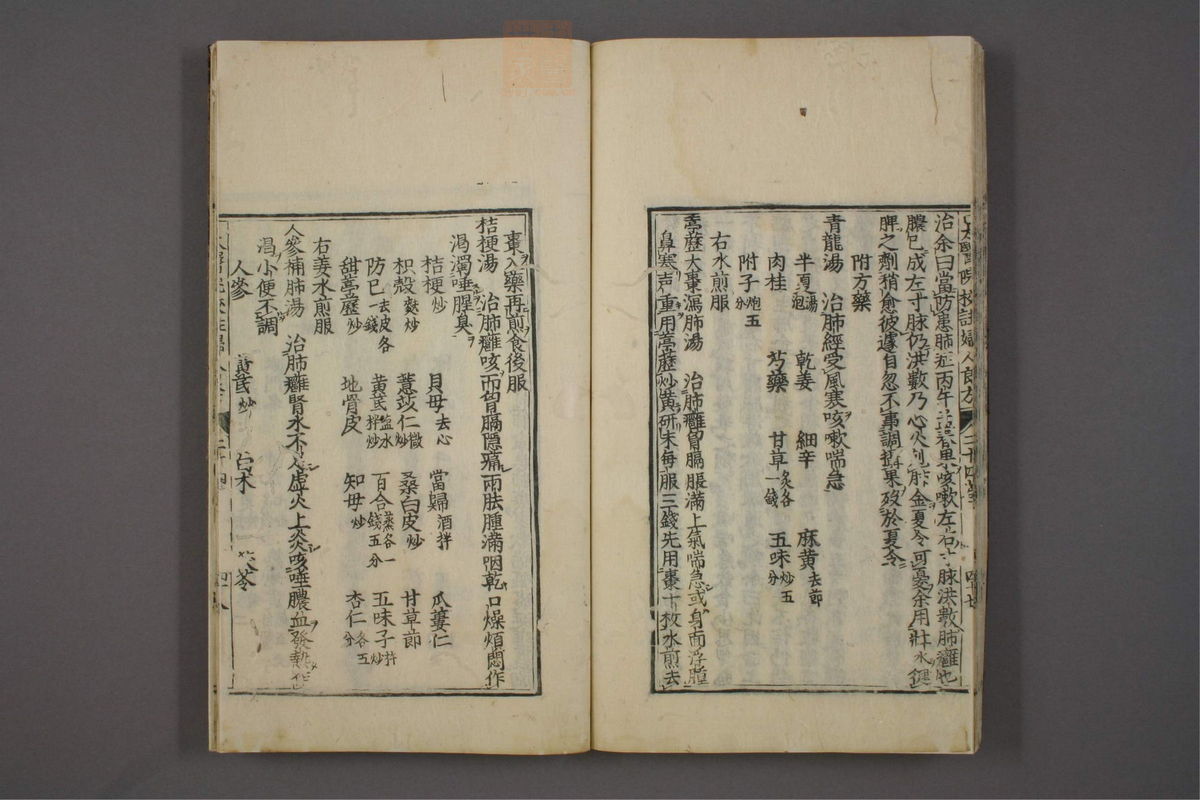 太醫院校註婦人良方 二十四卷 四十七
治余曰當防患肺症丙午孟春果咳嗽左右寸脉洪數肺癰也
膿已成左寸脉仍洪數乃心火剋肺金夏令可憂余用壯水健
脾之劑稍愈彼遽自忽不事調攝果歿於夏令
附方藥
青龍湯 治肺經受風寒咳嗽喘急
半夏湯泡 乾姜 細辛 麻黄去節
肉桂 芍藥 甘草炙各一錢 五味炒五分
附子炮五分
右水煎服
葶藶大棗瀉肺湯 治肺癰胷膈脹滿上氣喘急或身面浮腫
鼻塞声重用葶藶炒黄研末每服三錢先用棗十枚水煎去
棗入藥再煎食後服
桔梗湯 治肺癰咳而胷膈隱痛兩胠腫滿咽乾口燥煩悶作
渴濁唾腥臭
桔梗炒 貝母去心 當歸酒拌 瓜蔞仁
枳殼麩炒 薏苡仁微炒 桑白皮炒 甘草節
防已去皮各一錢 黄芪塩水拌炒 百合蒸各一錢五分 五味子杵炒
甜葶藶炒 地骨皮 知母炒 杏仁各五分
右姜水煎服
人參補肺湯 治肺癰腎水不足虚火上炎咳唾膿血發熱作
渇小便不調
人參 黄芪炒 白朮 茯苓